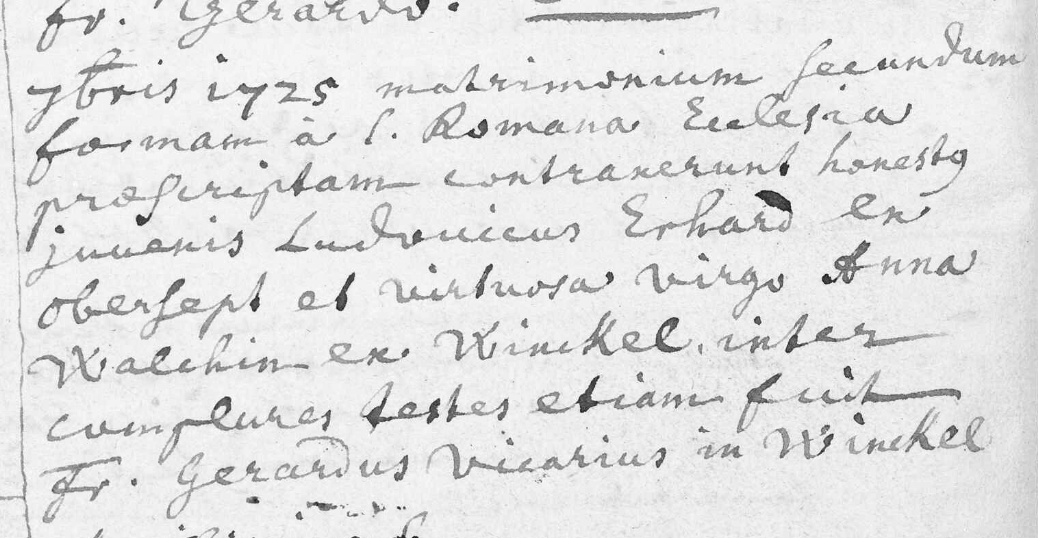 fr. Gerardo.
7bris 1725 matrimonium secundum
formam à S. Romana Ecclesia
præscriptam contraxerunt honestq
juvenis Ludovicus Erhard ex
obersept et virtuosa virgo Anna
Walchin ex Winckel, inter
complures testes etiam fuit
Fr. Gerardus Vicarius in Winckel